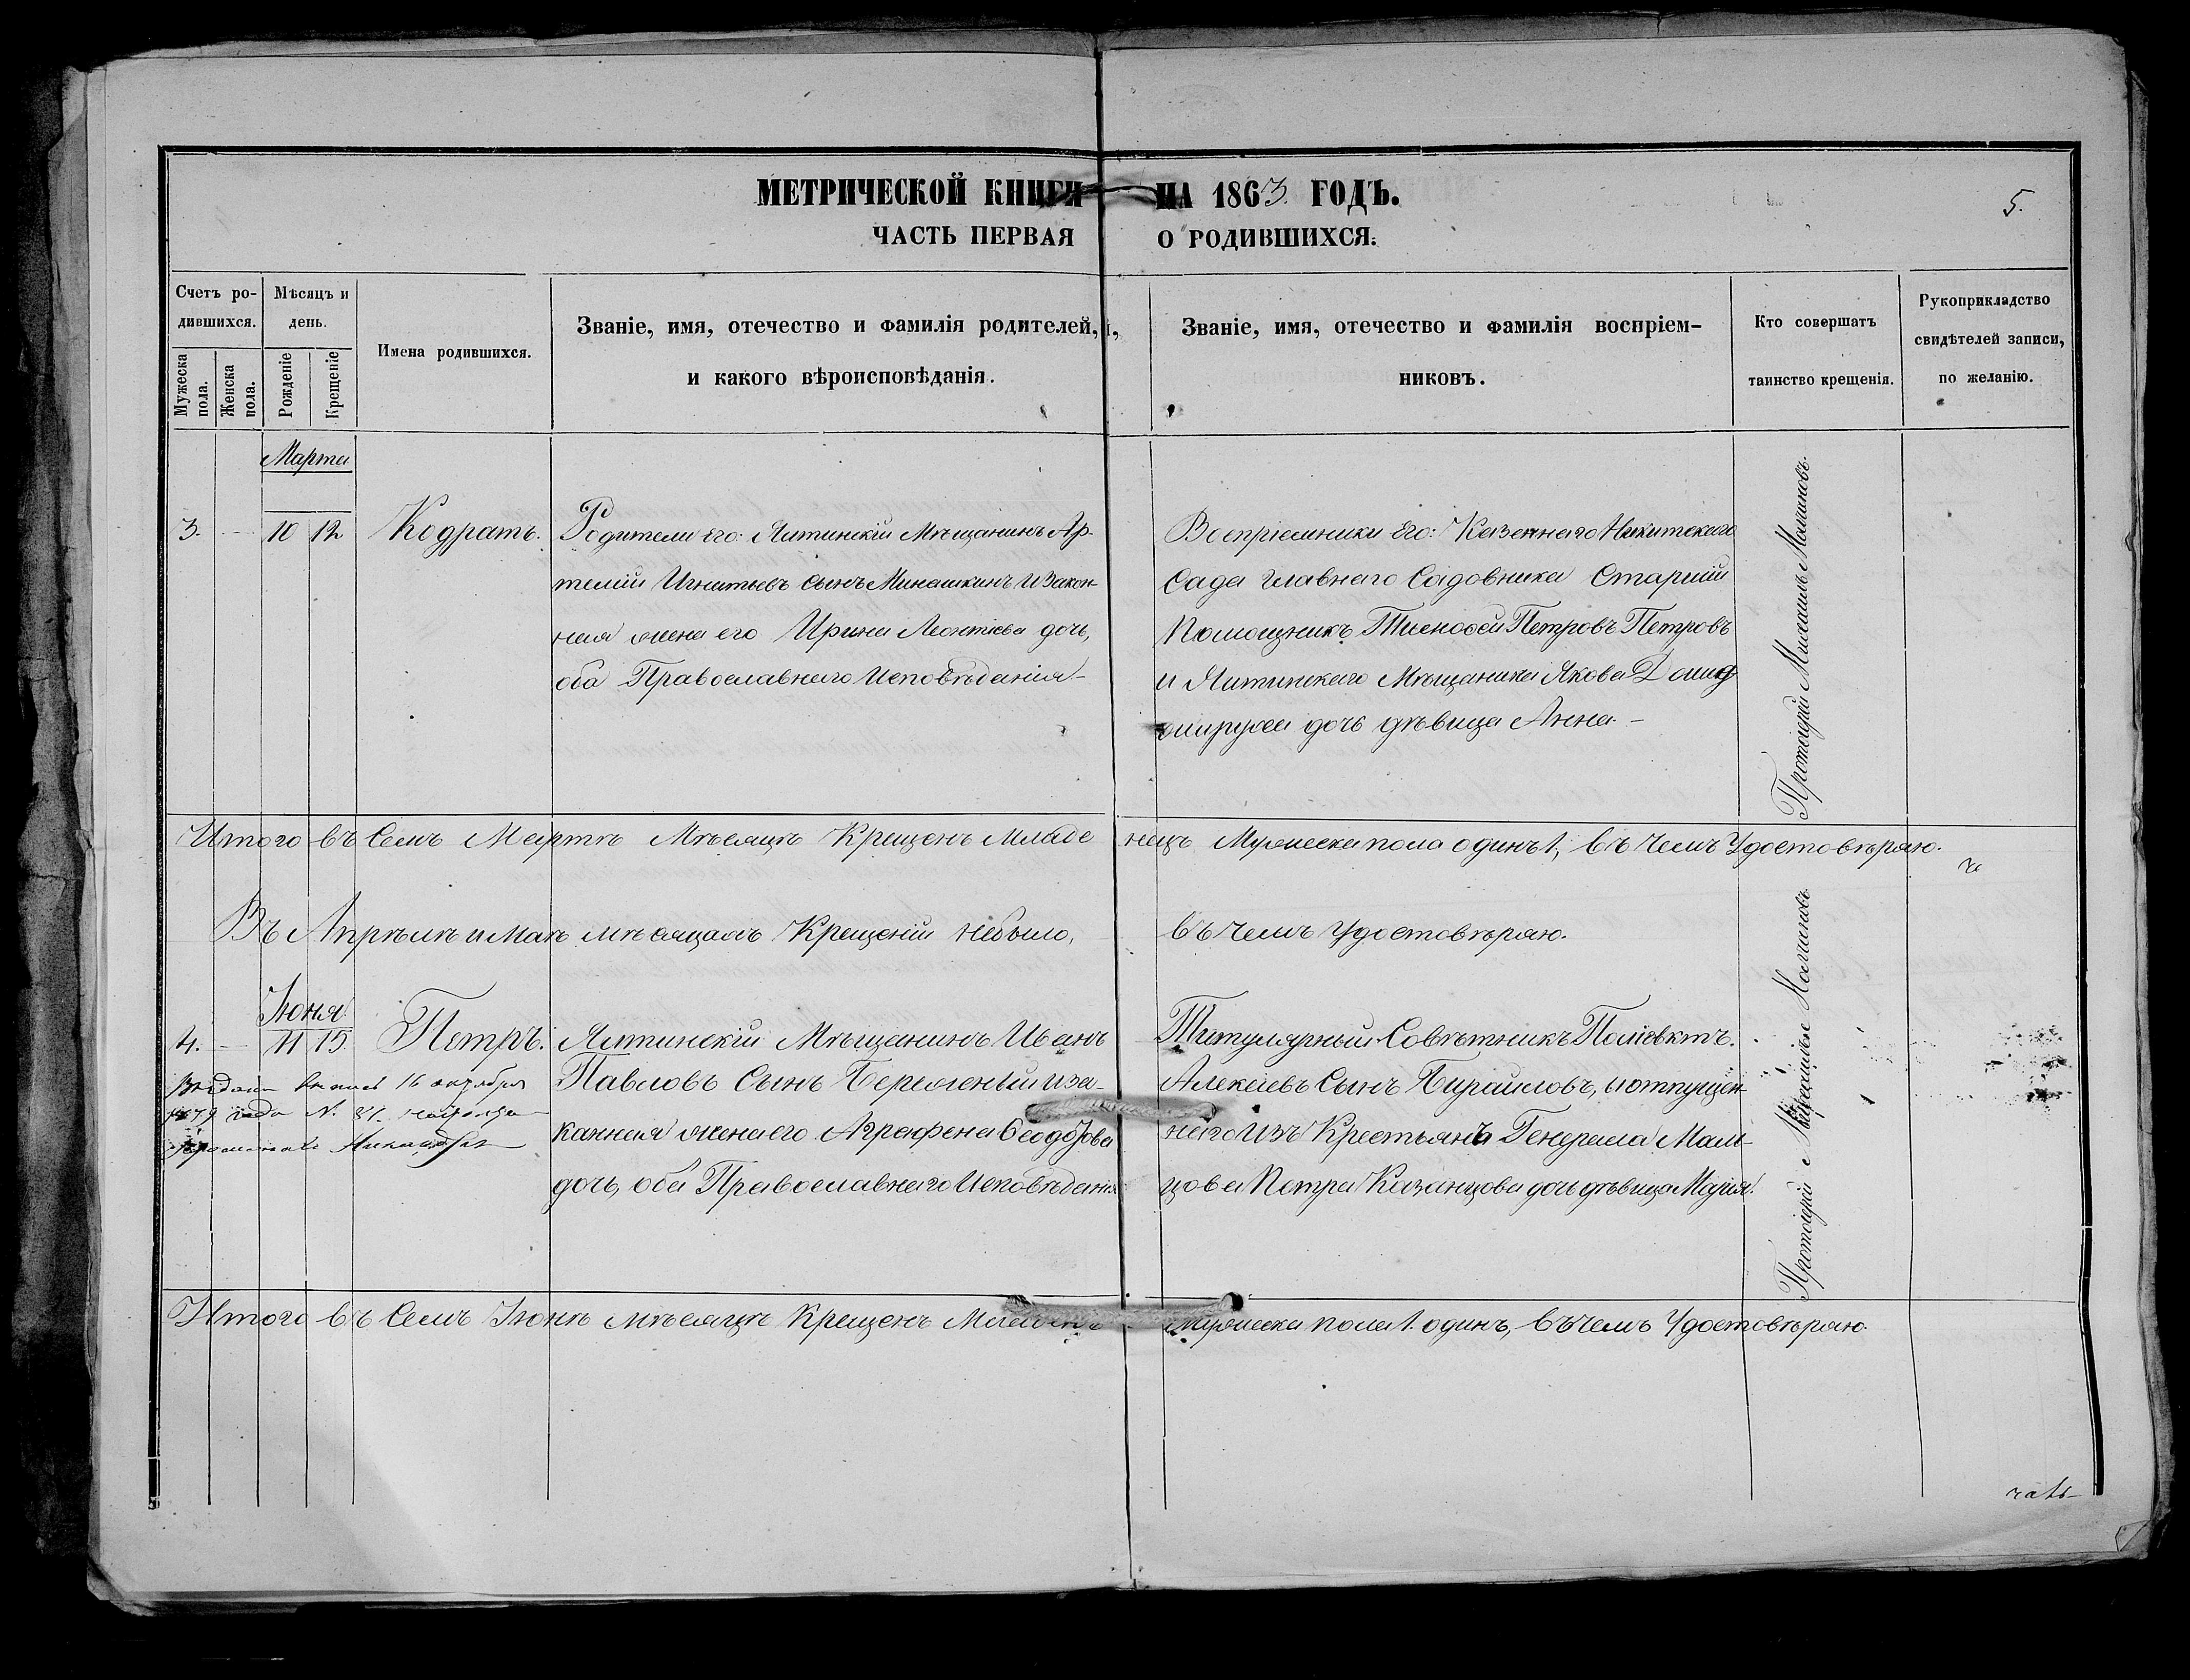 МЕТРИЧЕСКОЙ КНИГИ НА 1863 ГОДЪ.
5.
ЧАСТЬ ПЕРВАЯ О РОДИВШИХСЯ.
Счетъ ро-
дившихся.
Мужеска пола.
Женска пола.
Мѣсяцъ и
день.
Рожденіе
Крещеніе
Имена родившихся.
Званіе, имя, отечество и фамилія родителей,
и какого вѣроисповѣданія.
Званіе, имя, отечество и фамилія воспріем-
никовъ.
Кто совершатъ
таинство крещенія.
Рукоприкладство
свидѣтелей записи,
по желанію.
Марта
3. 10 12 Кодратъ.
Родители его: Ялтинскій Мѣщанинъ Ар-
темій Игнатьевъ сынъ Минашкинъ и закон-
ная жена его Ирина Леонтіева дочь,
оба Православнаго Исповѣданія
Воспріемники его: Казеннаго Никитскаго
Сада главнаго Садовника Старшій
Помощникъ Тимоѳей Петровъ Петровъ
и Ялтинскаго Мѣщанина Якова
дочь дѣвица Анна.
Протоіерей Михаилъ
Итого въ Семъ Мартѣ Мѣсяцѣ Крещенъ Младенецъ Мужеска пола одинъ 1, въ чемъ Удостовѣряю.
Въ Апрѣлѣ и Маѣ мѣсяцахъ Крещеній небыло, въ чемъ удостовѣряю.
Іюня
4. 11 15 Петръ.
16 октября
1879 года №
Ялтинскій Мѣщанинъ Иванъ
Павловъ Сынъ Бережный и за-
конная жена его Агрефена Ѳеодорова
дочь, оба Православнаго Исповѣданія
Титулярный Совѣтникъ Поліевктъ
Алексѣевъ Сынъ Бирайловъ, и отпущен-
наго изъ Крестьянъ Генерала Маль-
цова Петра Казанцова дочь дѣвица Марія.
Протоіерей
Итого въ Семъ Іюнѣ мѣсяцѣ Крещенъ Младенецъ Мужеска пола 1. одинъ, въ чемъ Удостовѣряю.